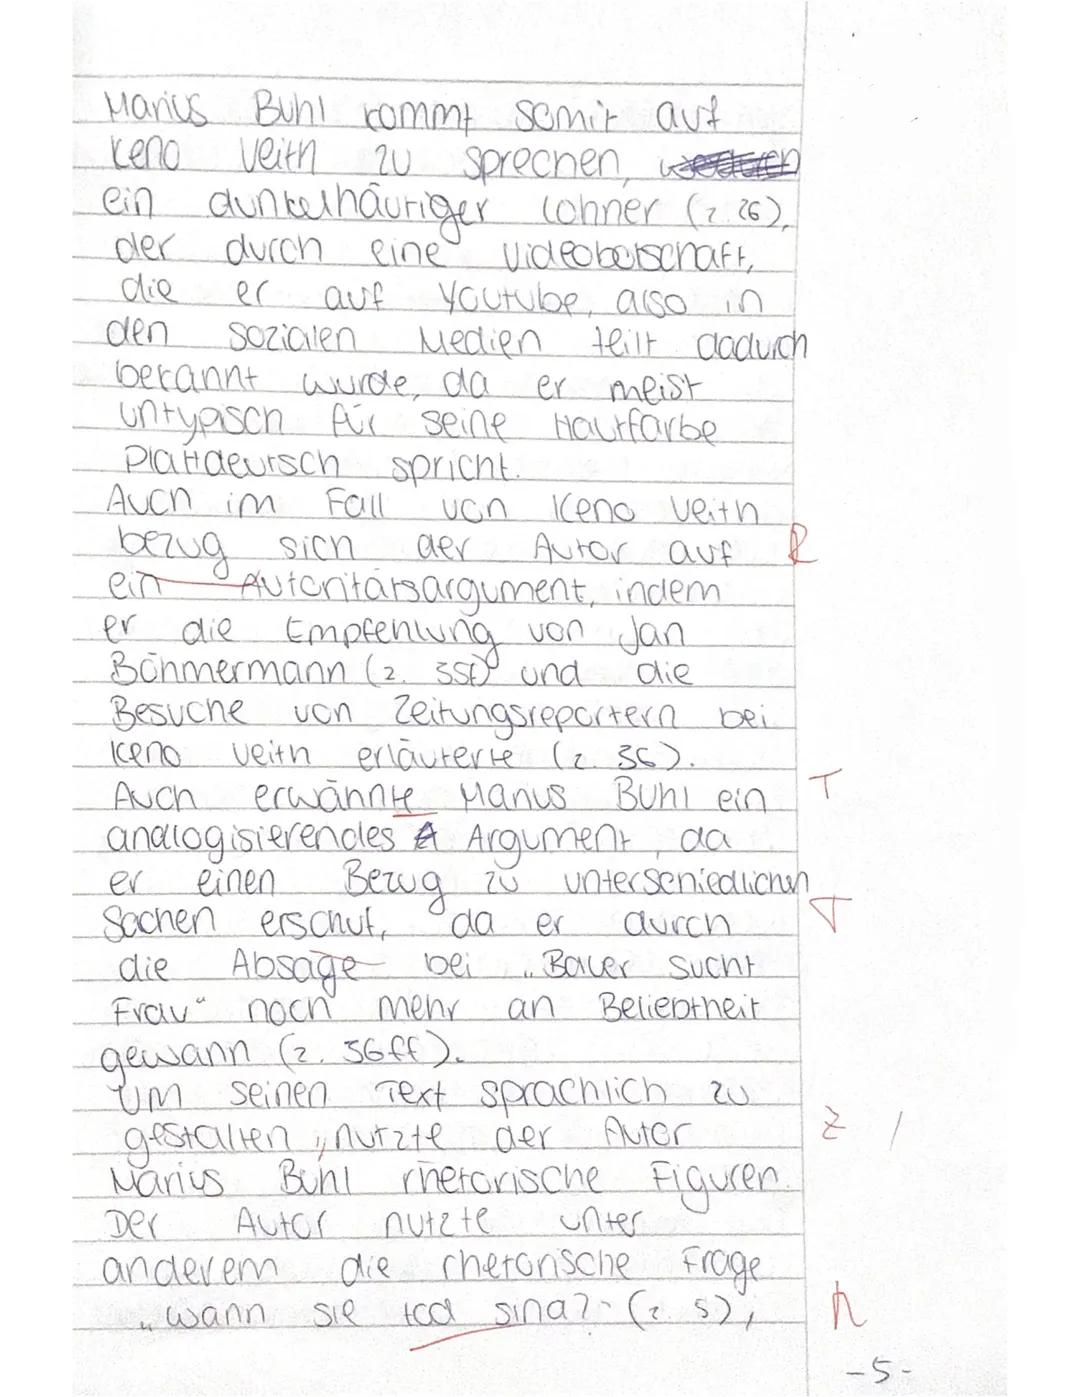 Marius Buhl kommt somit auf
Keno Veith zu sprechen,
ein dunkelhäutiger Lohner (Z. 26),
der durch eine Videobotschaft,
die er auf Youtube, also in
den sozialen Medien teilt dadurch
bekannt wurde, da er meist
untypisch für seine Hautfarbe
Plattdeutsch spricht.
Auch im Fall von Keno Veith
bezug sich der Autor auf R
ein Autoritätsargument, indem
er die Empfehlung von Jan
Böhmermann (Z. 35f) und die
Besuche von Zeitungsreportern bei
Keno Veith erläuterte (Z. 36).
Auch erwähnte Marius Buhl ein T
analogisierendes Argument, da
er einen Bezug zu unterschiedlichen
Sachen erschuf, da er durch T
die Absage bei „Bauer sucht
Frau“ noch mehr an Beliebtheit
gewann (Z. 36ff).
Um seinen Text sprachlich zu
gestalten, nutzte der Autor Z /
Marius Buhl rhetorische Figuren.
Der Autor nutzte unter
anderem die rhetorische Frage
„wann sie tod sind?“ (Z. 5),
-5-